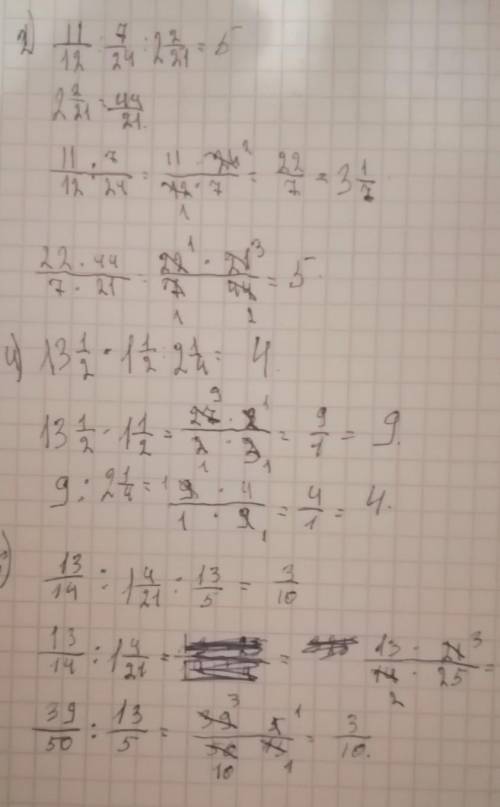 2) 11/12 : 7/24 : 2 2/21 = 5
2 2/21 = 44/21.
11/12 : 7/24 = 11 · 24 2 / 12 1 · 7 = 22/7 = 3 1/7
22 · 44 / 7 · 21 = 22 1 · 21 3 / 7 1 44 2 = 5
4) 13 1/2 · 1 1/2 : 2 1/4 = 4.
13 1/2 · 1 1/2 = 27 9 · 2 1 / 2 1 · 3 1 = 9/1 = 9.
9 : 2 1/4 = 1 9 · 4 / 1 · 9 1 = 4/1 = 4.
13/14 : 1 4/21 : 13/5 = 3/10
13/14 : 1 4/21 = = 13 · 21 3 / 14 2 · 25 =
39/50 : 13/5 = 39 3 5 1 / 50 10 13 1 = 3/10.